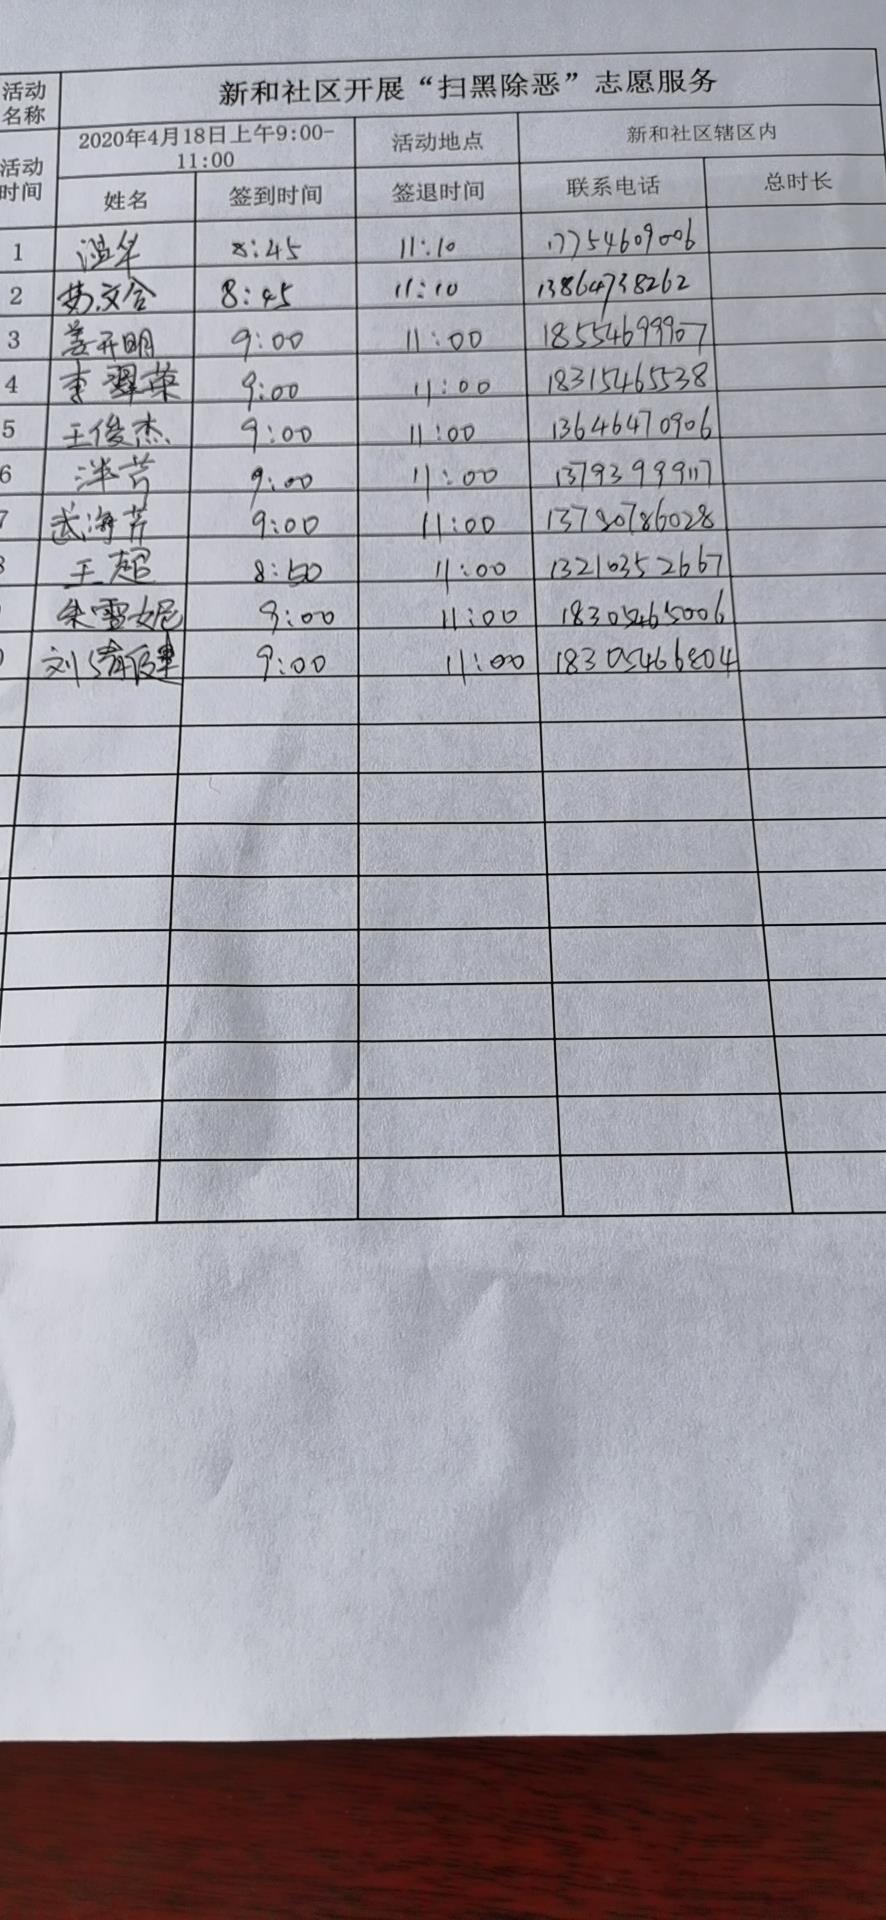 活动名称 新和社区开展“扫黑除恶”志愿服务
活动时间 2020年4月18日上午9:00-11:00 活动地点 新和社区辖区内
姓名 签到时间 签退时间 联系电话 总时长
1 温华 8:45 11:10 17754609006
2 8:45 11:10 13864738262
3 姜开明 9:00 11:00 18554699907
4 李翠荣 9:00 11:00 18315465538
5 王俊杰 9:00 11:00 13646470906
6 9:00 11:00
7 武海芹 9:00 11:00 13780786028
8 王超 8:50 11:00 13210352667
朱雪妮 9:00 11:00 18305465006
刘 9:00 11:00 18305466804